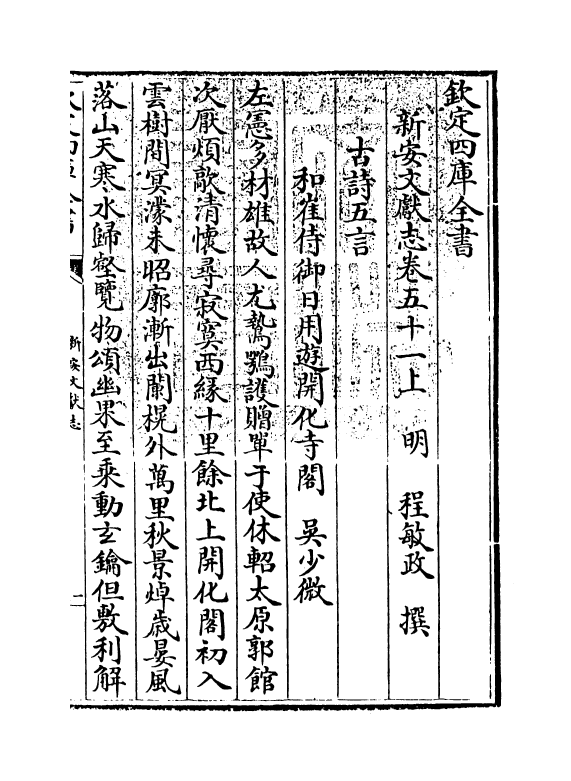 欽定四庫全書
新安文獻志卷五十一上　明　程敏政　撰
古詩五言
和崔侍御日用遊開化寺閣　吳少微
左憲多材雄故人尤鷙鶚護贈單于使休軺太原郭館
次厭煩歊清懷尋寂寞西緣十里餘北上開化閣初入
雲樹間冥濛未昭廓漸出闌榥外萬里秋景焯歲晏風
落山天寒水歸壑覽物頌幽果至乘動玄鑰但敷利解
新安文獻志
二